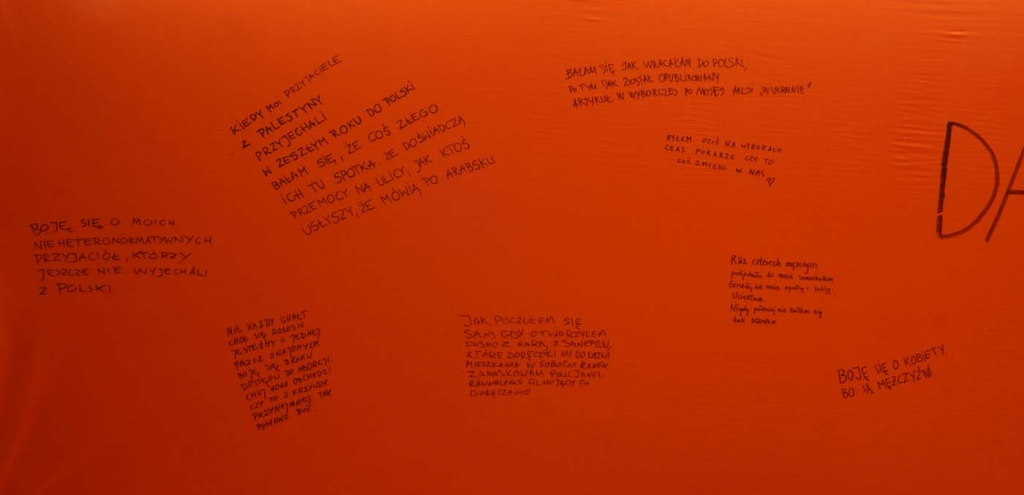 KIEDY MOI PRZYJACIELE
Z PALESTYNY
PRZYJECHALI
W ZESZŁYM ROKU DO POLSKI
BAŁAM SIĘ, ŻE COŚ ZŁEGO
ICH TU SPOTKA. ŻE DOŚWIADCZĄ
PRZEMOCY NA ULICY, JAK KTOŚ
USŁYSZY, ŻE MÓWIĄ PO ARABSKU
BAŁAM SIĘ JAK WRACAŁAM DO POLSKI,
PO TYM JAK ZOSTAŁ OPUBLIKOWANY
ARTYKUŁ W WYBORCZEJ PO MOJEJ AKCJI
BYŁEM DZIŚ NA WYBORACH
CZAS POKARZE CZY TO
COŚ ZMIENI W NAS
DA
BOJĘ SIĘ O MOICH
NIEHETERONORMATYWNYCH
PRZYJACIÓŁ, KTÓRZY
JESZCZE NIE WYJECHALI
Z POLSKI
Raz czterech mężczyzn
podjechało do mnie samochodem
i
Uciekłam.
Nigdy później nie bałam się
tak bardzo.
NIE KAŻDY GWAŁT
CHCE SIĘ ZGŁOSIĆ.
JESTEŚMY W JEDNEJ
PACZCE ZNAJOMYCH
BOJĘ SIĘ BRAKU
DOSTĘPU DO ABORCJI.
CZY TO Z KRZYWDY.
PRZYNAJMNIEJ TAK
POWINNO BYĆ.
JAK POCZUŁEM SIĘ
SAM GDY OTWORZYŁEM
PISMO Z KARĄ Z SANEPIDU,
KTÓRE DORĘCZYLI MI DO DRZWI
MIESZKANIA W SOBOTNI RANEK
ZAMASKOWANI POLICJANCI
RÓWNOCZEŚNIE FILMUJĄCY TO
DORĘCZANIE
BOJĘ SIĘ O KOBIETY
BO SĄ MĘŻCZYŹNI